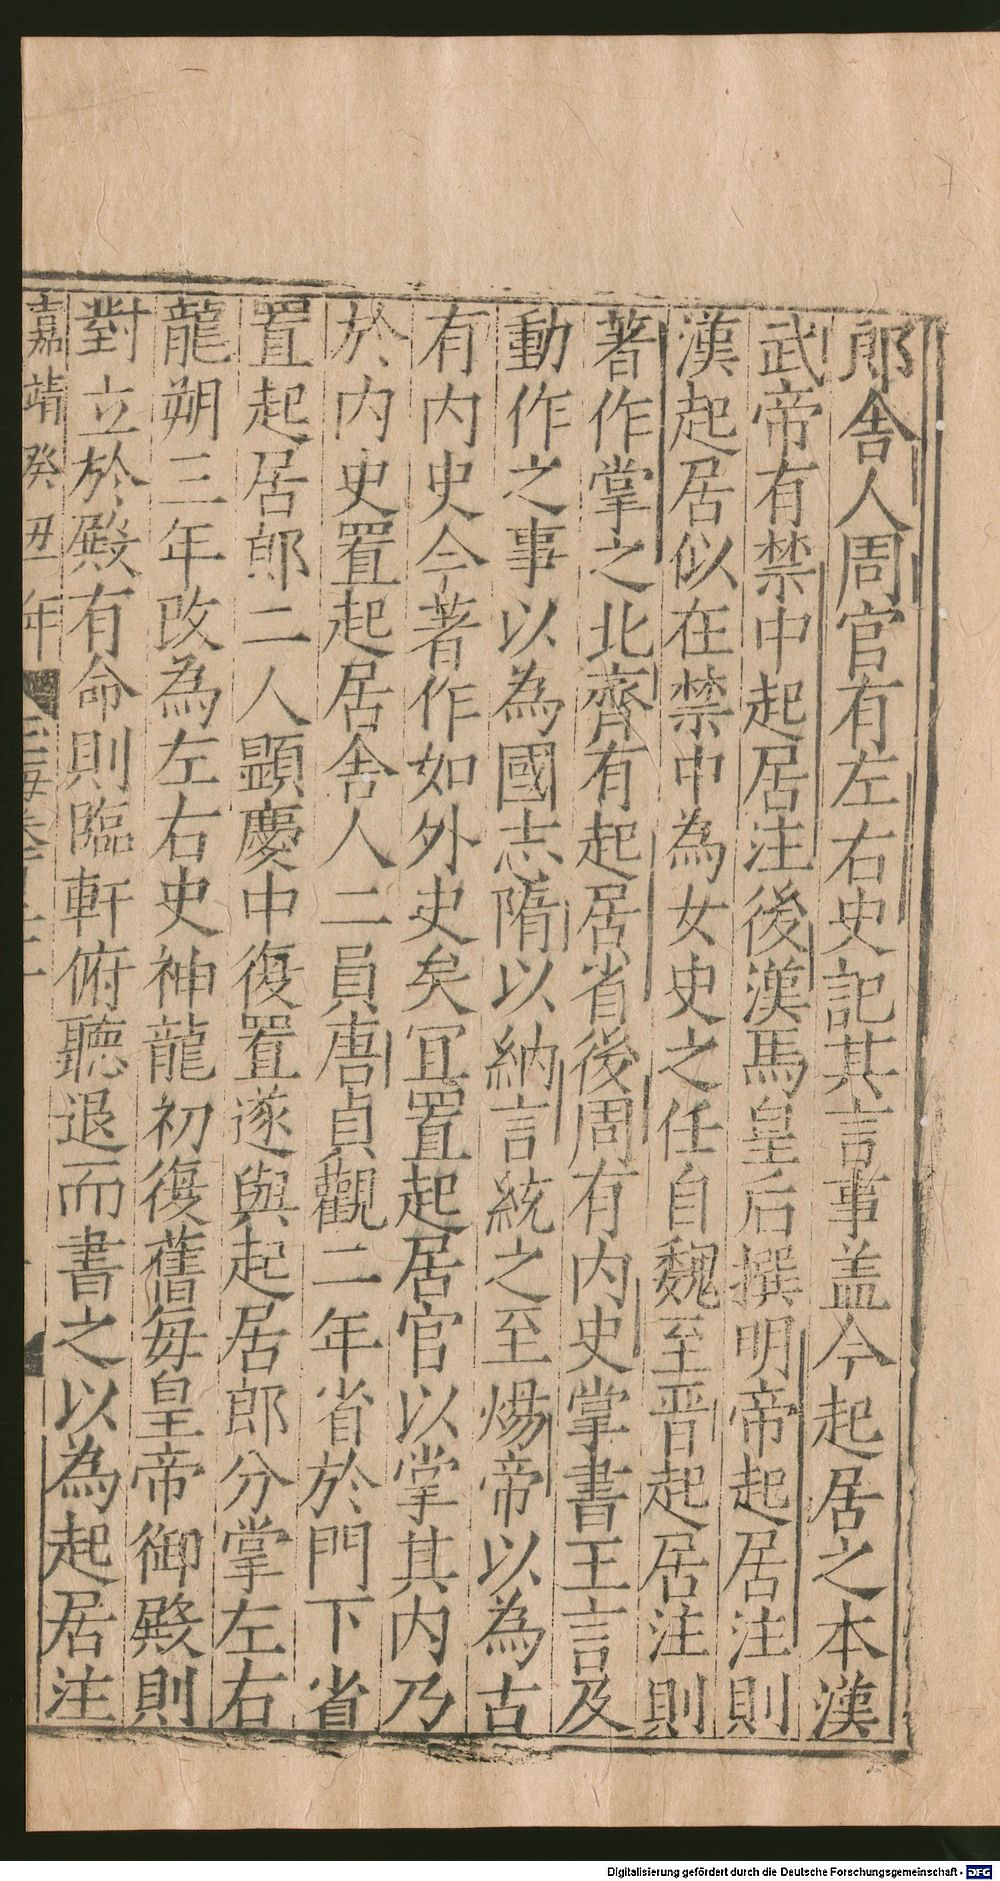 郎舎人周官有左右史記其言事盖今起居之本漢
武帝有禁中起居注後漢馬皇后撰明帝起居注則
漢起居似在禁中為女史之任自魏至晋起居注則
著作掌之北齊有起居省後周有内史掌書王言及
動作之事以為國志隋以納言統之至煬帝以為古
有内史今著作如外史矣冝置起居官以掌其内乃
於内史置起居舎人二員唐貞觀二年省於門下省
置起居郎二人顯慶中復置遂與起居郎分掌左右
龍朔三年改為左右史神龍初復舊每皇帝御殿則
對立於殿有命則臨軒俯聽退而書之以為起居注
嘉靖癸丑年
Digitalisierung gefördert durch die Deutsche Forschungsgemeinschaft - DFG